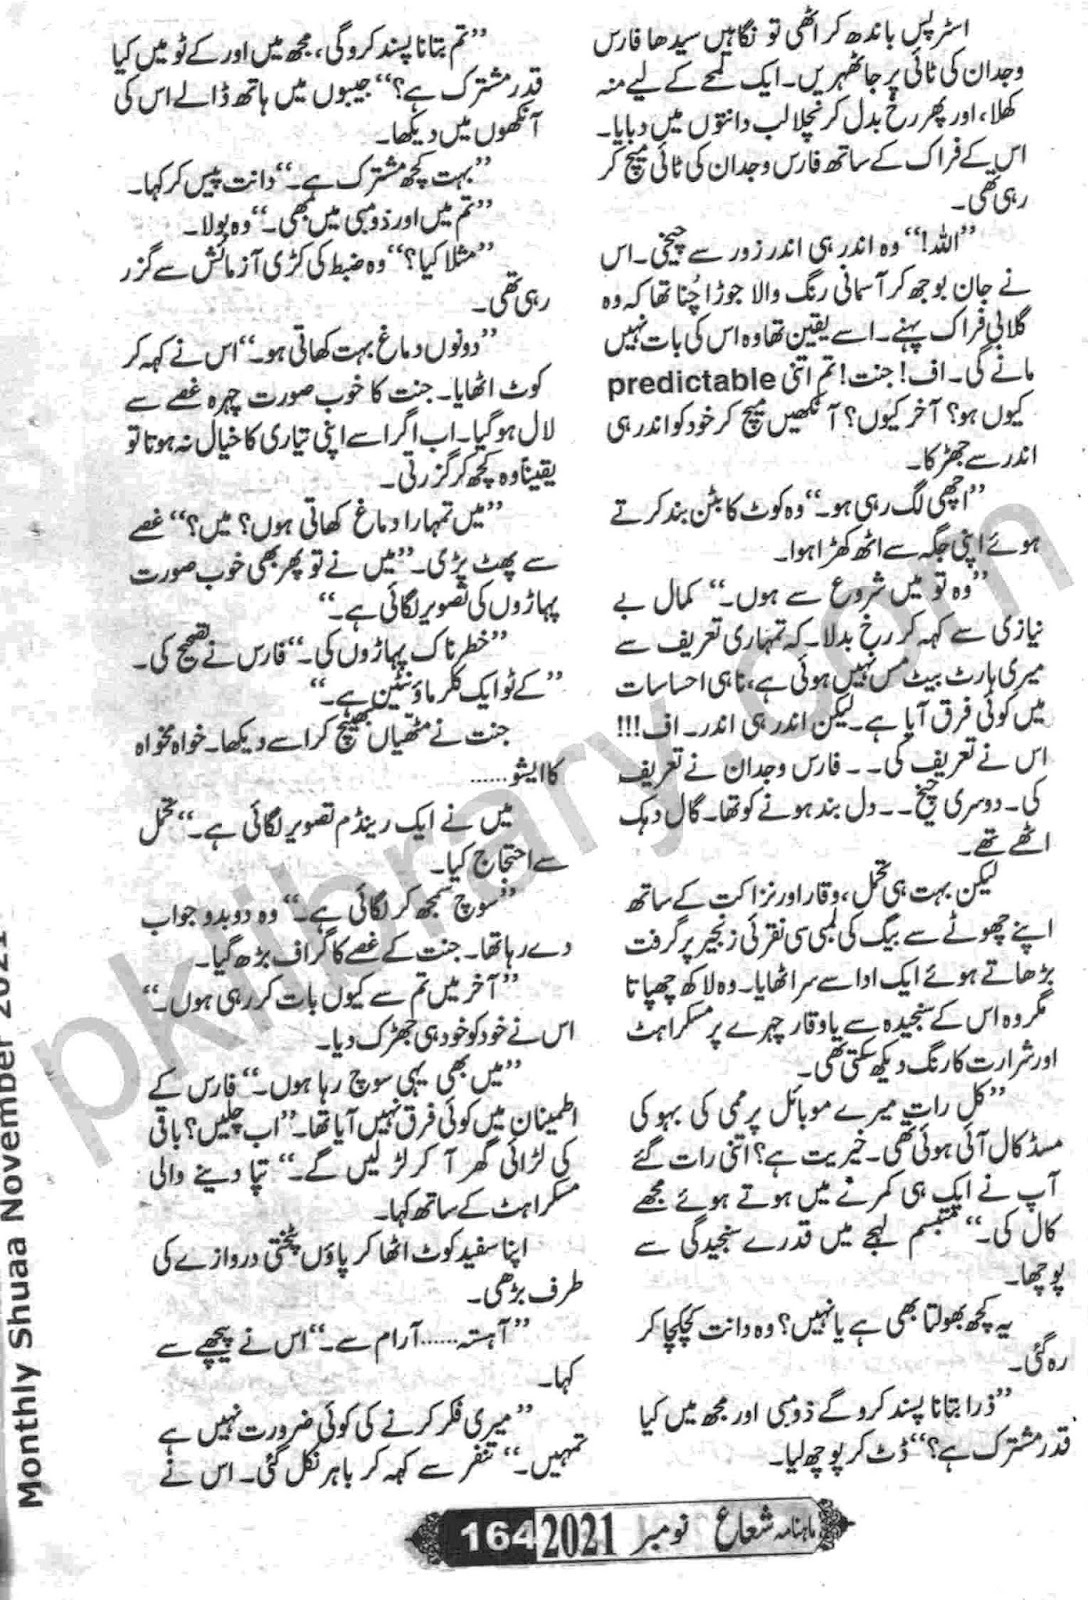 اسٹریپس باندھ کر اٹھی تو نگاہیں سیدھا فارس
وجدان کی ٹائی پر جا ٹھہریں۔ ایک لمحے کے لیے منہ
کھلا، اور پھر رخ بدل کر نچلا لب دانتوں میں دبایا۔
اس کے فراک کے ساتھ فارس وجدان کی ٹائی میچ کر
رہی تھی۔
”اللہ!“ وہ اندر ہی اندر زور سے چیخی۔ اس
نے جان بوجھ کر آسمانی رنگ والا جوڑا چُنا تھا کہ وہ
گلابی فراک پہنے۔ اسے یقین تھا وہ اس کی بات نہیں
مانے گی۔ اف! جنت! تم اتنی predictable
کیوں ہو؟ آخر کیوں؟ آنکھیں میچ کر خود کو اندر ہی
اندر سے جھڑکا۔
”اچھی لگ رہی ہو۔“ وہ کوٹ کا بٹن بند کرتے
ہوئے اپنی جگہ سے اٹھ کھڑا ہوا۔
”وہ تو میں شروع سے ہوں۔“ کمال بے
نیازی سے کہہ کر رخ بدلا۔ کہ تمہاری تعریف سے
میری ہارٹ بیٹ مس نہیں ہوئی ہے، نا ہی احساسات
میں کوئی فرق آیا ہے۔ لیکن اندر ہی اندر۔ اف!!!
اس نے تعریف کی۔۔۔ فارس وجدان نے تعریف
کی۔ دوسری چیخ۔۔۔ دل بند ہونے کو تھا۔ گال دہک
اٹھے تھے۔
لیکن بہت ہی تحمل، وقار اور نزاکت کے ساتھ
اپنے چھوٹے سے بیگ کی لمبی سی نقرئی زنجیر پر گرفت
بڑھاتے ہوئے ایک ادا سے سر اٹھایا۔ وہ لاکھ چھپاتا
مگر وہ اس کے سنجیدہ سے باوقار چہرے پر مسکراہٹ
اور شرارت کا رنگ دیکھ سکتی تھی۔
”کل رات میرے موبائل پر ممی کی بہو کی
مسڈ کال آئی ہوئی تھی۔ خیریت ہے؟ اتنی رات گئے
آپ نے ایک ہی کمرے میں ہوتے ہوئے مجھے
کال کی۔“ متبسم لہجے میں قدرے سنجیدگی سے
پوچھا۔
یہ کچھ بھولتا بھی ہے یا نہیں؟ وہ دانت کچکچا کر
رہ گئی۔
”ذرا بتانا پسند کرو گے ذومبی اور مجھ میں کیا
قدر مشترک ہے؟“ ڈٹ کر پوچھ لیا۔
”تم بتانا پسند کرو گی، مجھ میں اور کے ٹو میں کیا
قدر مشترک ہے؟“ جیبوں میں ہاتھ ڈالے اس کی
آنکھوں میں دیکھا۔
”بہت کچھ مشترک ہے۔“ دانت پیس کر کہا۔
”تم میں اور ذومبی میں بھی۔“ وہ بولا۔
”مثلا کیا؟“ وہ ضبط کی کڑی آزمائش سے گزر
رہی تھی۔
”دونوں دماغ بہت کھاتی ہو۔“ اس نے کہہ کر
کوٹ اٹھایا۔ جنت کا خوب صورت چہرہ غصے سے
لال ہو گیا۔ اب اگر اسے اپنی تیاری کا خیال نہ ہوتا تو
یقیناً وہ کچھ کر گزرتی۔
”میں تمہارا دماغ کھاتی ہوں؟ میں؟“ غصے
سے پھٹ پڑی۔ ”میں نے تو پھر بھی خوب صورت
پہاڑوں کی تصویر لگائی ہے۔“
”خطرناک پہاڑوں کی۔“ فارس نے تصحیح کی۔
”کے ٹو ایک کلر ماؤنٹین ہے۔“
جنت نے مٹھیاں بھینچ کر اسے دیکھا۔ خواہ مخواہ
کا ایشو......
میں نے ایک رینڈم تصویر لگائی ہے۔“ تحمل
سے احتجاج کیا۔
”سوچ سمجھ کر لگائی ہے۔“ وہ دوبدو جواب
دے رہا تھا۔ جنت کے غصے کا گراف بڑھ گیا۔
”آخر میں تم سے کیوں بات کر رہی ہوں۔“
اس نے خود کو خود ہی جھڑک دیا۔
”میں بھی یہی سوچ رہا ہوں۔“ فارس کے
اطمینان میں کوئی فرق نہیں آیا تھا۔ ”اب چلیں؟ باقی
کی لڑائی گھر آ کر لڑ لیں گے۔“ تپا دینے والی
مسکراہٹ کے ساتھ کہا۔
اپنا سفید کوٹ اٹھا کر پاؤں پٹختی دروازے کی
طرف بڑھی۔
”آہستہ...... آرام سے۔“ اس نے پیچھے سے
کہا۔
”میری فکر کرنے کی کوئی ضرورت نہیں ہے
تمہیں۔“ تنفر سے کہہ کر باہر نکل گئی۔ اس نے
ماہنامہ شعاع نومبر 2021 164
Monthly Shuaa November 2021
pklibrary.com